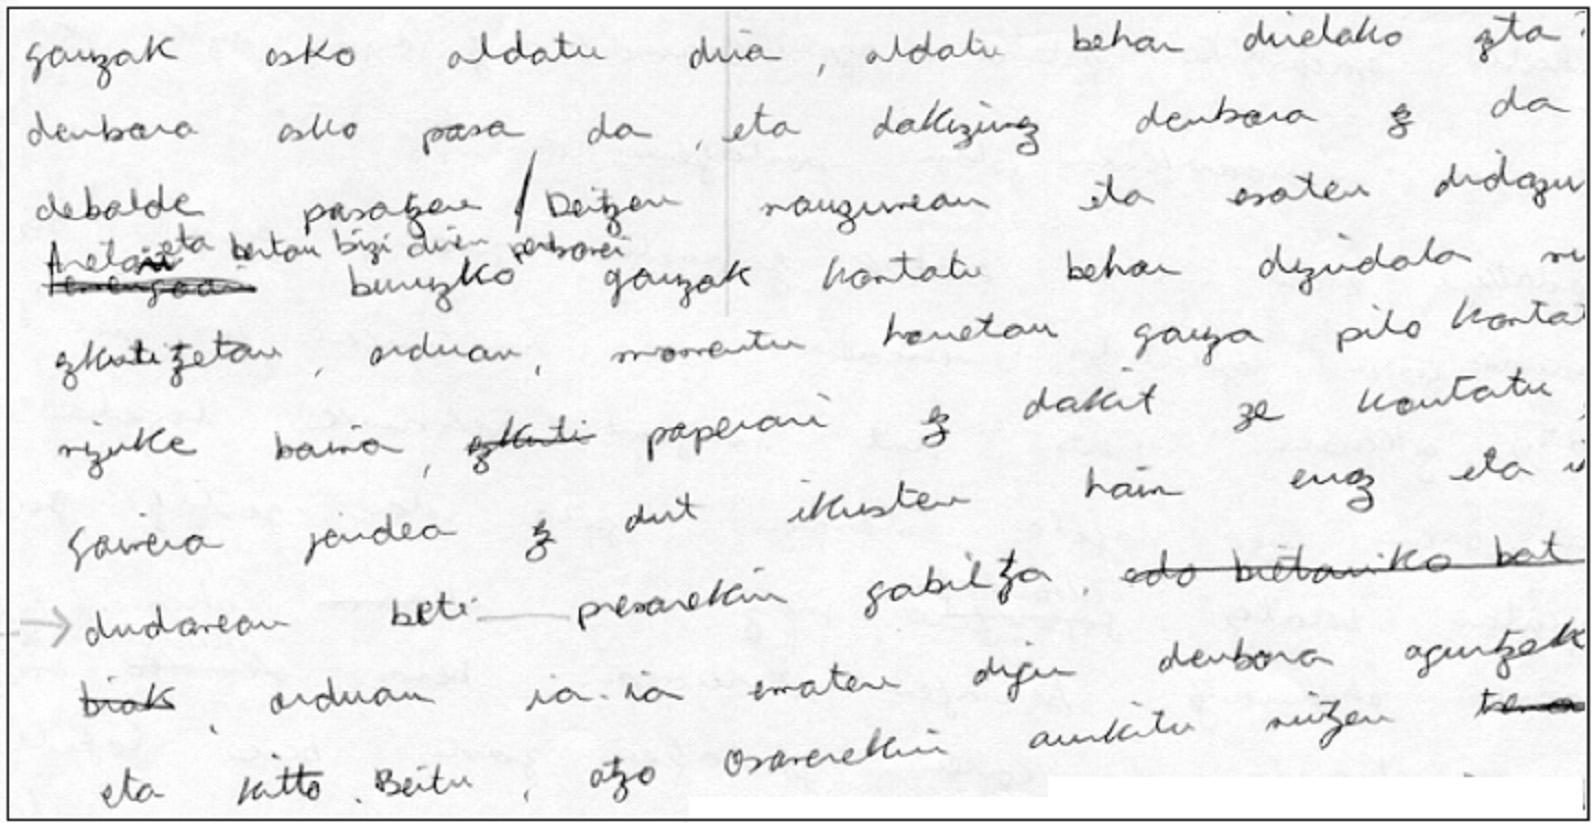 gauzak asko aldatu dira, aldatu behar direlako eta
denbora asko pasa da, eta dakizunez denbora ez da
debalde pasatzen / Deitzen nauzunean eta esaten didazun
eta bertan bizi diren pertsonei
buruzko gauzak kontatu behar dizudala
ezkutitzetan, orduan, momentu honetan gauza pilo kontatu
nizuke baina, ezkuti paperari ez dakit ze kontatu,
gainera jendea ez dut ikusten hain erraz eta
dudanean beti presarekin gabiltza. edo bietariko bat
biok, orduan ia-ia ematen digu denbora agurtzek
eta kitto. Beitu, atzo Osanerekin aurkitu nitzen